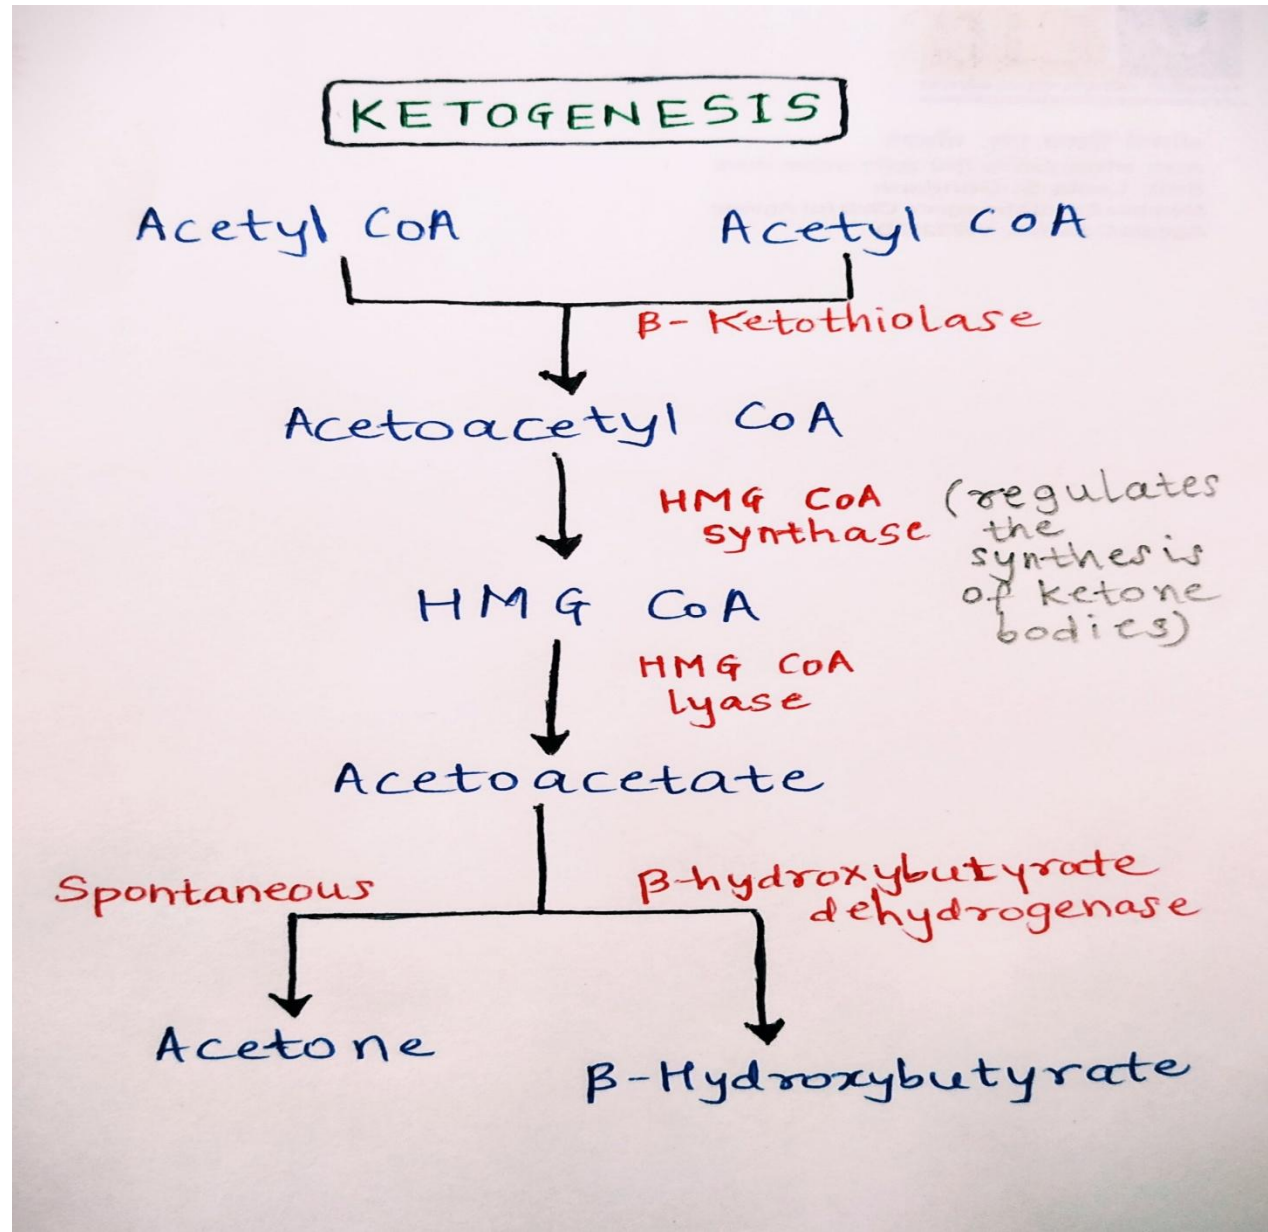 KETOGENESIS
Acetyl CoA
Acetyl CoA
β- Ketothiolase
Acetoacetyl CoA
HMG CoA
synthase
(regulates
the
synthesis
of ketone
bodies)
HMG CoA
HMG CoA
lyase
Acetoacetate
Spontaneous
β-hydroxybutyrate
dehydrogenase
Acetone
β-Hydroxybutyrate